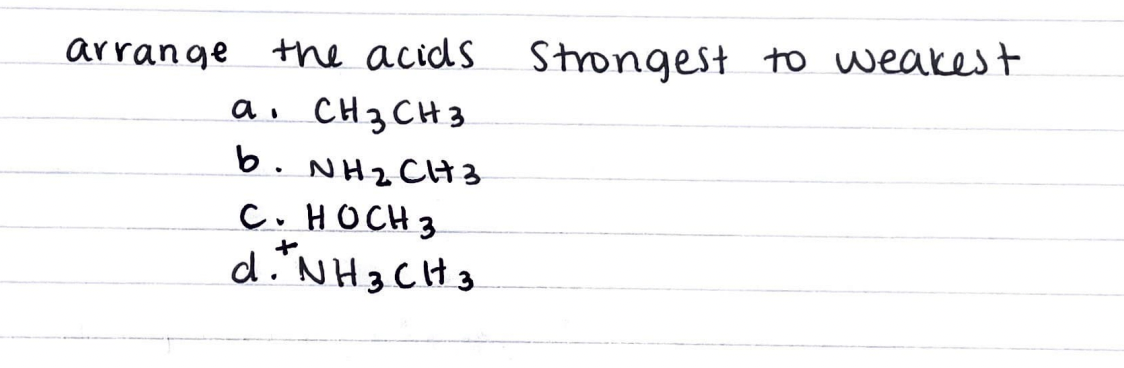 arrange the acids strongest to weakest
a. CH3CH3
b. NH2CH3
c. HOCH3
d. +NH3CH3